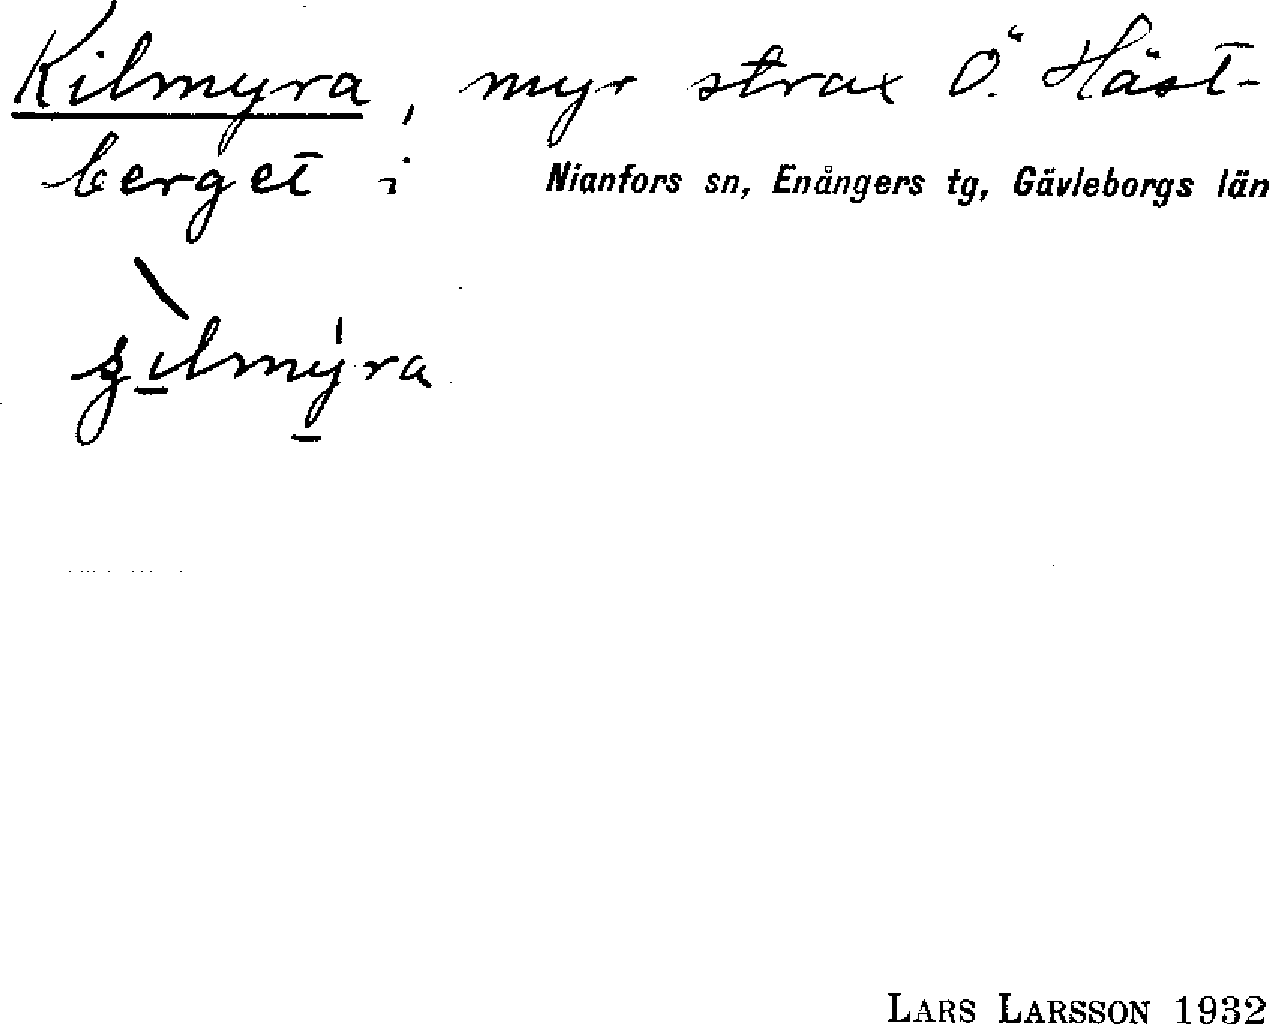 Kilmyra, myr strax Ö. Häst-
berget i Nianfors sn, Enångers tg, Gävleborgs län
LARS LARSSON 1932